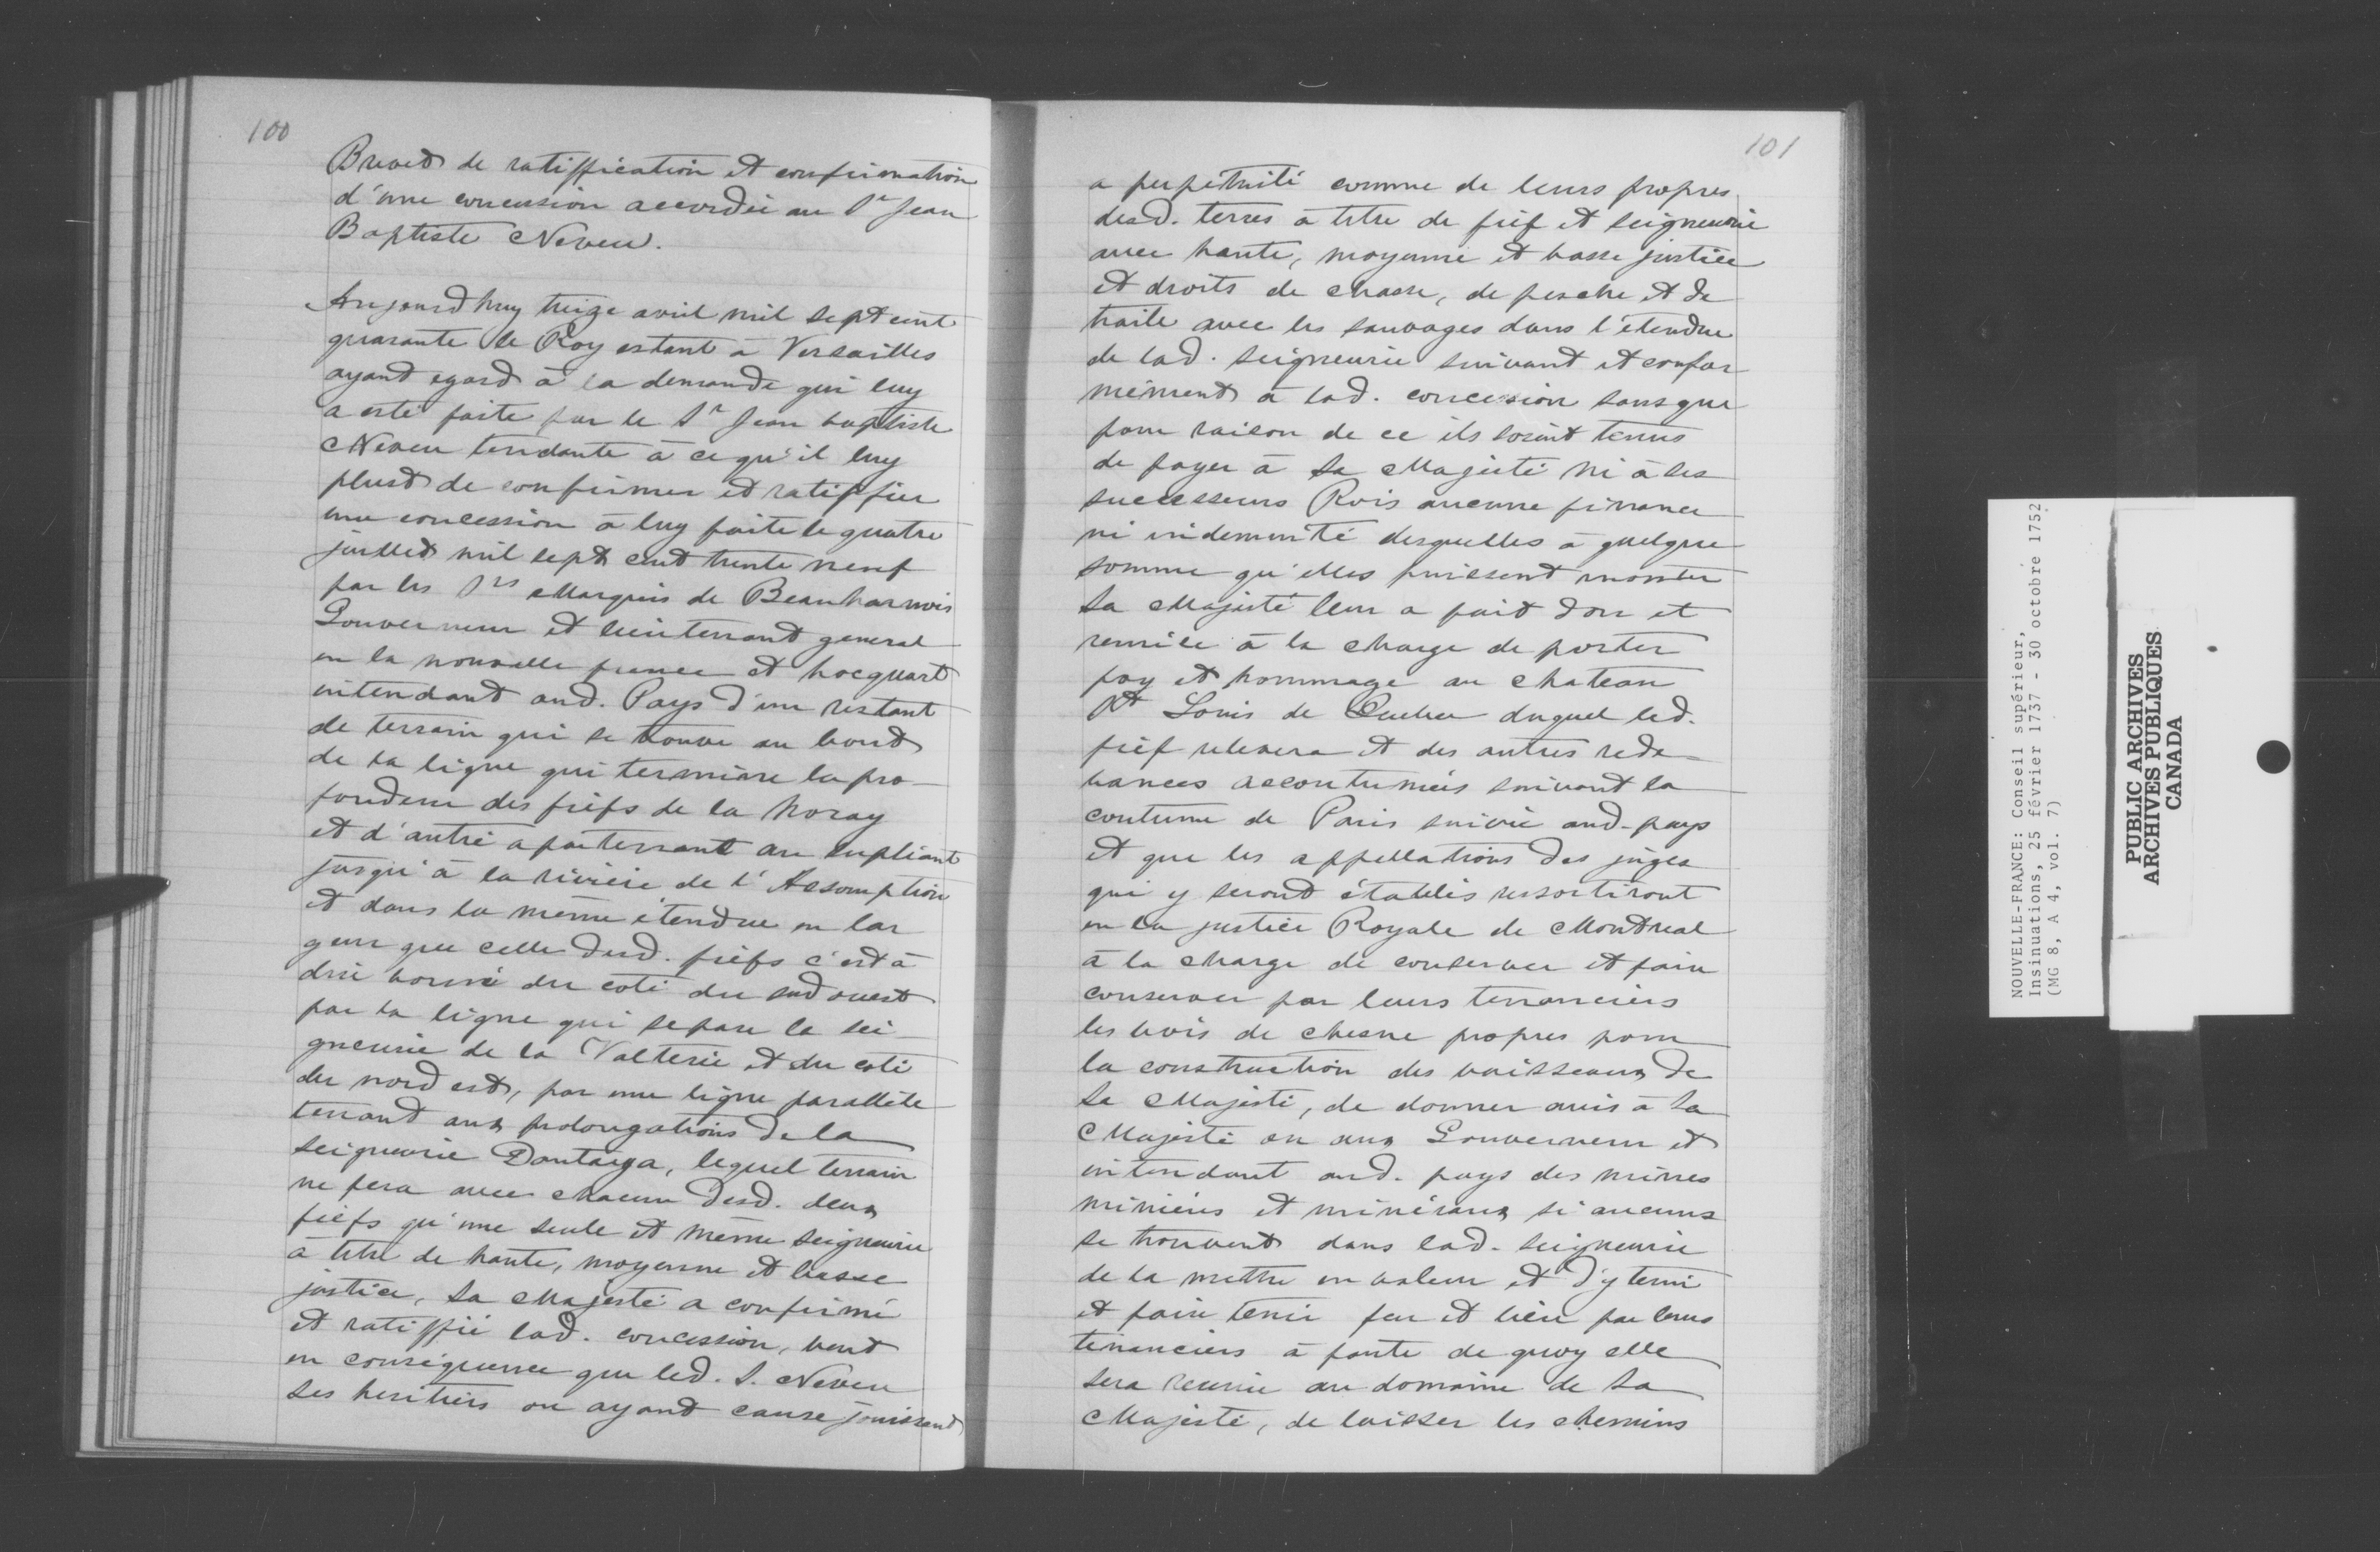 100
Brevet de ratiffication et confirmation
d'une concession accordée au Sr Jean
Baptiste Neveu.
Aujourd'huy treize avril mil sept cent
quarante le Roy estant à Versailles
ayant egard à la demande qui luy
a esté faite par le Sr Jean baptiste
Neveu tendante à ce qu'il luy
plust de confirmer et ratiffier
une concession à luy faite le quatre
juillet mil sept cent trente neuf
par les Srs Marquis de Beauharnois
Gouverneur et lieutenant general
en la nouvelle france et hocquart
intendant aud. Pays d'un restant
de terrain qui se trouve au bout
de la ligne qui termine la pro-
fondeur des fiefs de la Noray
et d'autré apartenant au supliant
jusqu'à la rivière de l'Assomption
et dans la même étendue en lar
geur que celle desd. fiefs c'est à
dire borné du coté du sud ouest
par la ligne qui separe la sei-
gneurie de la Valterie et du coté
du nord est, par une ligne parallèle
tenant aux prolongations de la
seigneurie Dautaya, lequel terrain
ne fera avec chacun desd. deux
fiefs qu'une seule et même seigneurie
à titre de haute, moyenne et basse
justice, Sa Majesté a confirmé
et ratiffié lad. concession, veut
en conséquence que led. S. Neveu
ses heritiers ou ayant cause jouissent
101
a perpétuité comme de leurs propres
desd. terres à titre de fief et seigneurie
avec haute, moyenne et basse justice
et droits de chasse, de pesche et de
traite avec les sauvages dans l'étendue
de lad. seigneurie suivant et confor
mément à lad. concession sans que
pour raison de ce ils soient tenus
de payer à Sa Majesté ni à ses
successeurs Rois aucune finance
ni indemnité desquelles à quelque
somme qu'elles puissent monter
Sa Majesté leur a fait don et
remise à la charge de porter
foy et hommage au chateau
St Louis de Quebec duquel led.
fief relevera et des autres rede-
vances accoutumées suivant la
coutume de Paris suivie aud. pays
et que les appellations des juges
qui y seront établis ressortiront
en la justice Royale de Montreal
à la charge de conserver et faire
conserver par leurs tenanciers
les bois de chesne propres pour
la construction des vaisseaux de
Sa Majesté, de donner avis à Sa
Majesté ou aux Gouverneur et
intendant aud. pays des mines
minières et minéraux si aucuns
se trouvent dans lad. seigneurie
de la mettre en valeur et d'y tenir
et faire tenir feu et lieu par leurs
tenanciers à faute de quoy elle
sera reunie au domaine de Sa
Majesté, de laisser les chemins
NOUVELLE-FRANCE: Conseil supérieur,
Insinuations, 25 février 1737 - 30 octobre 1752
(MG 8, A 4, vol. 7)
PUBLIC ARCHIVES
ARCHIVES PUBLIQUES
CANADA